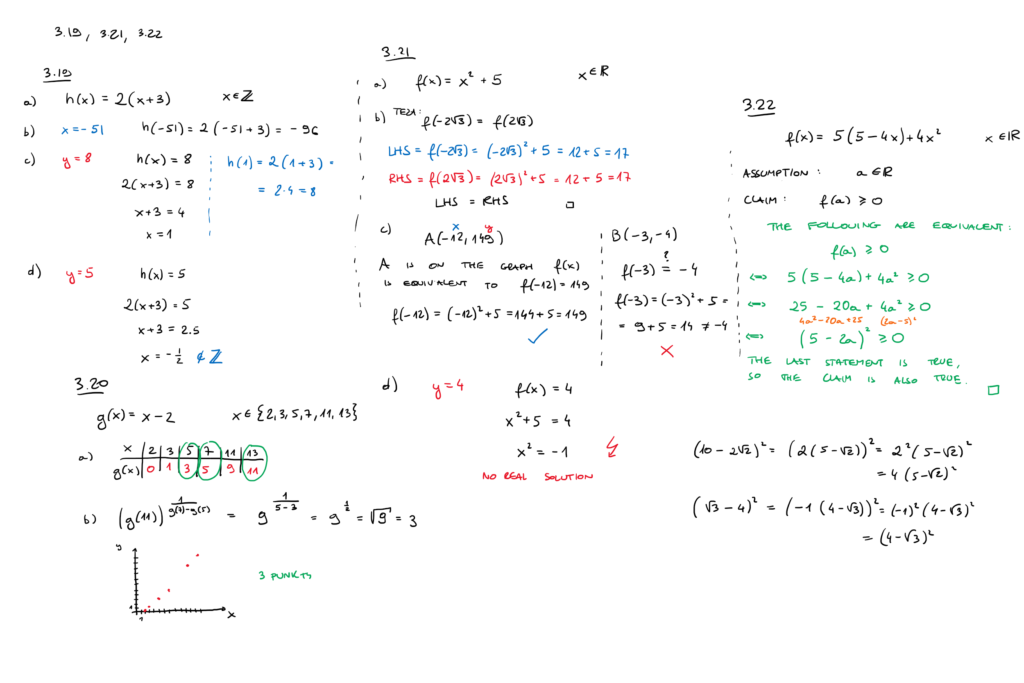 3.19, 3.21, 3.22
3.19
a) h(x) = 2(x+3) x∈ℤ
b) x = -51 h(-51) = 2(-51+3) = -96
c) y = 8 h(x) = 8
2(x+3) = 8
x+3 = 4
x = 1
h(1) = 2(1+3) =
= 2·4 = 8
d) y = 5 h(x) = 5
2(x+3) = 5
x+3 = 2.5
x = -1/2 ∉ ℤ
3.20
g(x) = x-2 x∈{2,3,5,7,11,13}
a) x | 2 | 3 | 5 | 7 | 11 | 13
g(x) | 0 | 1 | 3 | 5 | 9 | 11
b) (g(11))^(1/(g(7)-g(5))) = 9^(1/(5-3)) = 9^(1/2) = √9 = 3
y
1
1
x
3 PUNKTS
3.21
a) f(x) = x² + 5 x∈ℝ
b) TEZA: f(-2√3) = f(2√3)
LHS = f(-2√3) = (-2√3)² + 5 = 12+5 = 17
RHS = f(2√3) = (2√3)² + 5 = 12+5 = 17
LHS = RHS □
c) x y
A(-12, 149)
A IS ON THE GRAPH f(x)
IS EQUIVALENT TO f(-12) = 149
f(-12) = (-12)² + 5 = 144 + 5 = 149
✓
B(-3, -4)
?
f(-3) = -4
f(-3) = (-3)² + 5 =
= 9+5 = 14 ≠ -4
✗
d) y = 4 f(x) = 4
x² + 5 = 4
x² = -1
NO REAL SOLUTION
3.22
f(x) = 5(5-4x) + 4x² x∈ℝ
ASSUMPTION: a∈ℝ
CLAIM: f(a) ≥ 0
THE FOLLOWING ARE EQUIVALENT:
f(a) ≥ 0
⇔ 5(5-4a) + 4a² ≥ 0
⇔ 25 - 20a + 4a² ≥ 0
4a² - 20a + 25 (2a-5)²
⇔ (5-2a)² ≥ 0
THE LAST STATEMENT IS TRUE,
SO THE CLAIM IS ALSO TRUE. □
(10-2√2)² = (2(5-√2))² = 2²(5-√2)²
= 4(5-√2)²
(√3-4)² = (-1(4-√3))² = (-1)²(4-√3)²
= (4-√3)²